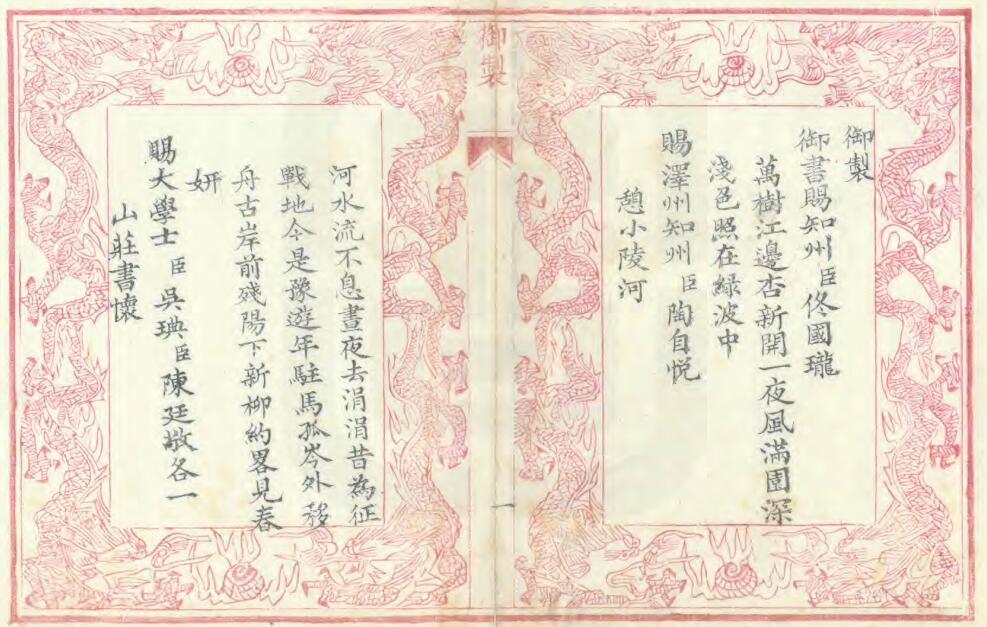 御製
御書賜知州臣佟國瓏
萬樹江邊杏新開一夜風滿園深
淺色照在綠波中
賜澤州知州臣陶自悅
憩小陵河
御製
一
河水流不息晝夜去涓涓昔為征
戰地今是豫遊年駐馬孤岑外移
舟古岸前殘陽下新柳約畧見春
妍
賜大學士臣吳琠臣陳廷敬各一
山莊書懷